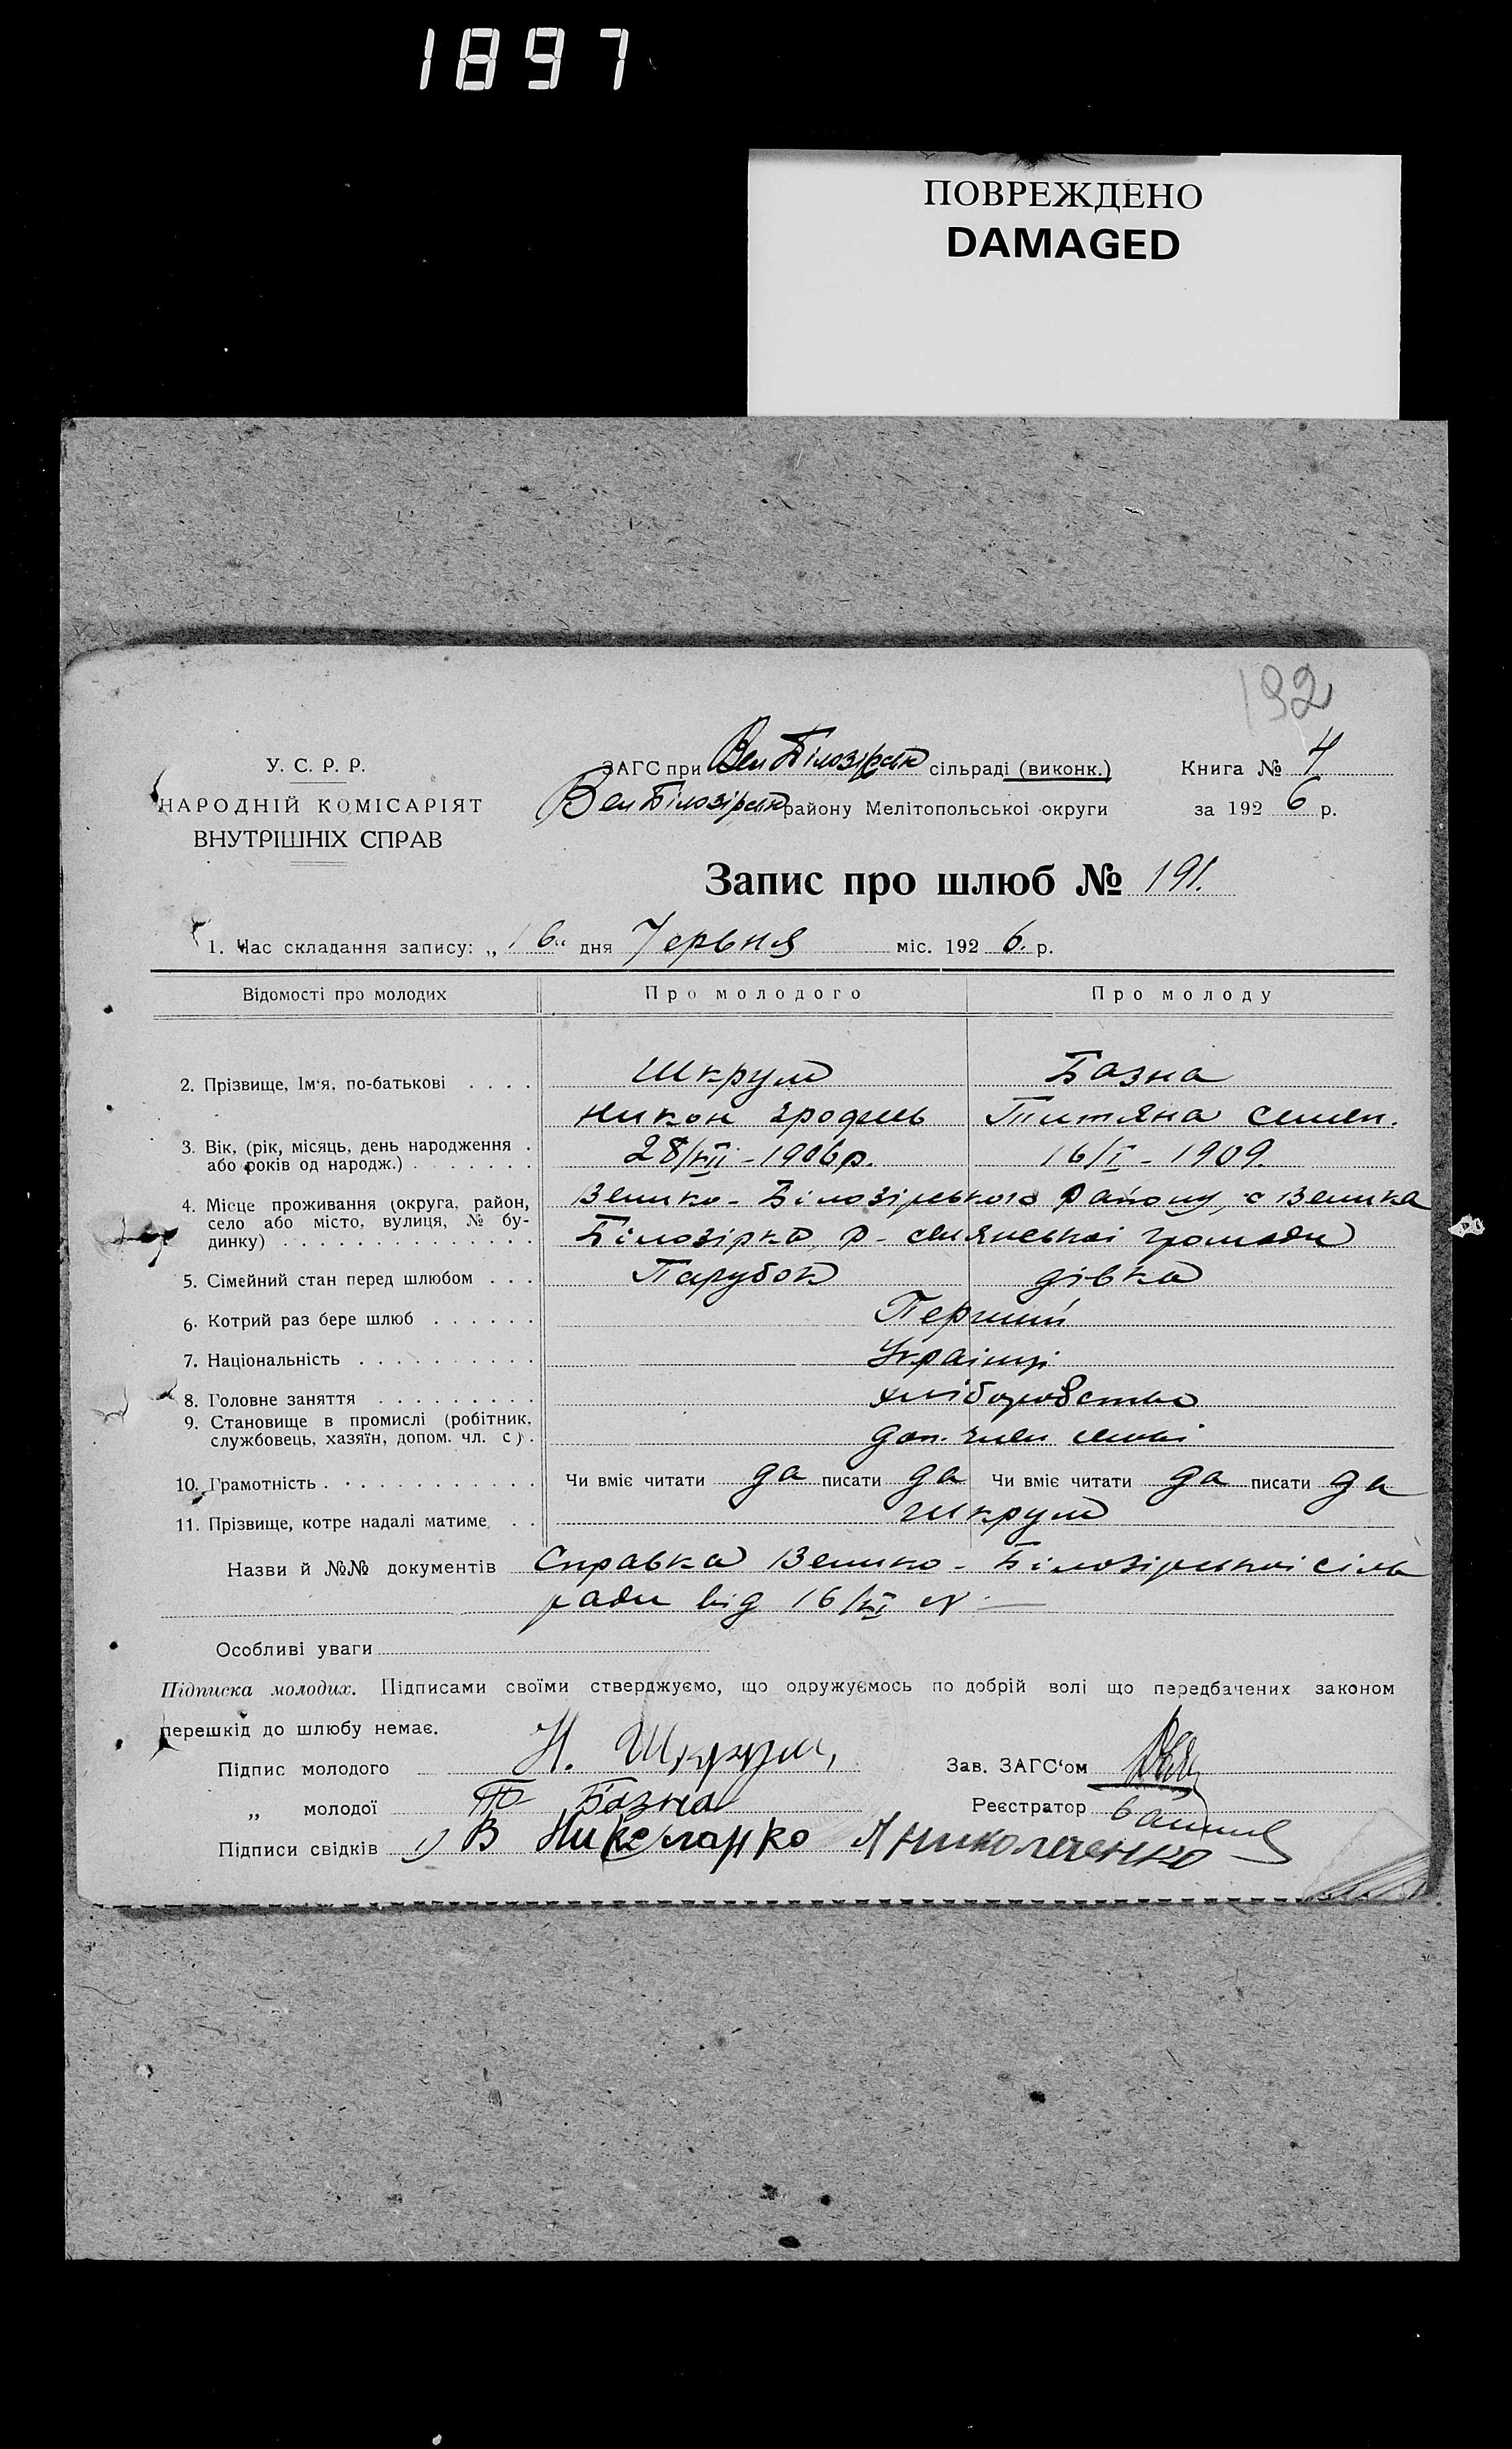 1897
ПОВРЕЖДЕНО
DAMAGED
192
У. С. Р. Р.
НАРОДНІЙ КОМІСАРІЯТ
ВНУТРІШНІХ СПРАВ
ЗАГС при Вел Білозірськ сільраді (виконк.)
Книга № 4
Вел Білозірськ району Мелітопольської округи
за 1926 р.
Запис про шлюб № 191.
1. Час складання запису: „16“ дня Червня міс. 1926. р.
Відомості про молодих
Про молодого
Про молоду
2. Прізвище, Ім‘я, по-батькові . . . .
Шкрум
Базна
Никон
Титяна Семен.
3. Вік, (рік, місяць, день народження .
або років од народж.) . . . . . . .
28/VII - 1906 р.
16/I - 1909.
4. Місце проживання (округа, район,
село або місто, вулиця, № бу-
динку) . . . . . . . . . . . . . .
Велико-Білозірського Району, с Велика
Білозірка, Р- громади
5. Сімейний стан перед шлюбом . . .
Парубок
дівка
6. Котрий раз бере шлюб . . . . . .
Перший
7. Національність . . . . . . . . . .
Українці
8. Головне заняття . . . . . . . . .
хліборобство
9. Становище в промислі (робітник,
службовець, хазяїн, допом. чл. с) .
доп. член семьі
10. Грамотність . . . . . . . . . . . .
Чи вміє читати да писати да
Чи вміє читати да писати да
11. Прізвище, котре надалі матиме . .
Шкрум
Назви й №№ документів Справка Велико-Білозірської сіль
ради від 16/VI
Особливі уваги
Підписка молодих. Підписами своїми стверджуємо, що одружуємось по добрій волі що передбачених законом
перешкід до шлюбу немає.
Підпис молодого Н. Шкрум,
Зав. ЗАГС‘ом
„ молодої Т Базна
Реєстратор
Підписи свідків 1) В Николанко А Николаенко